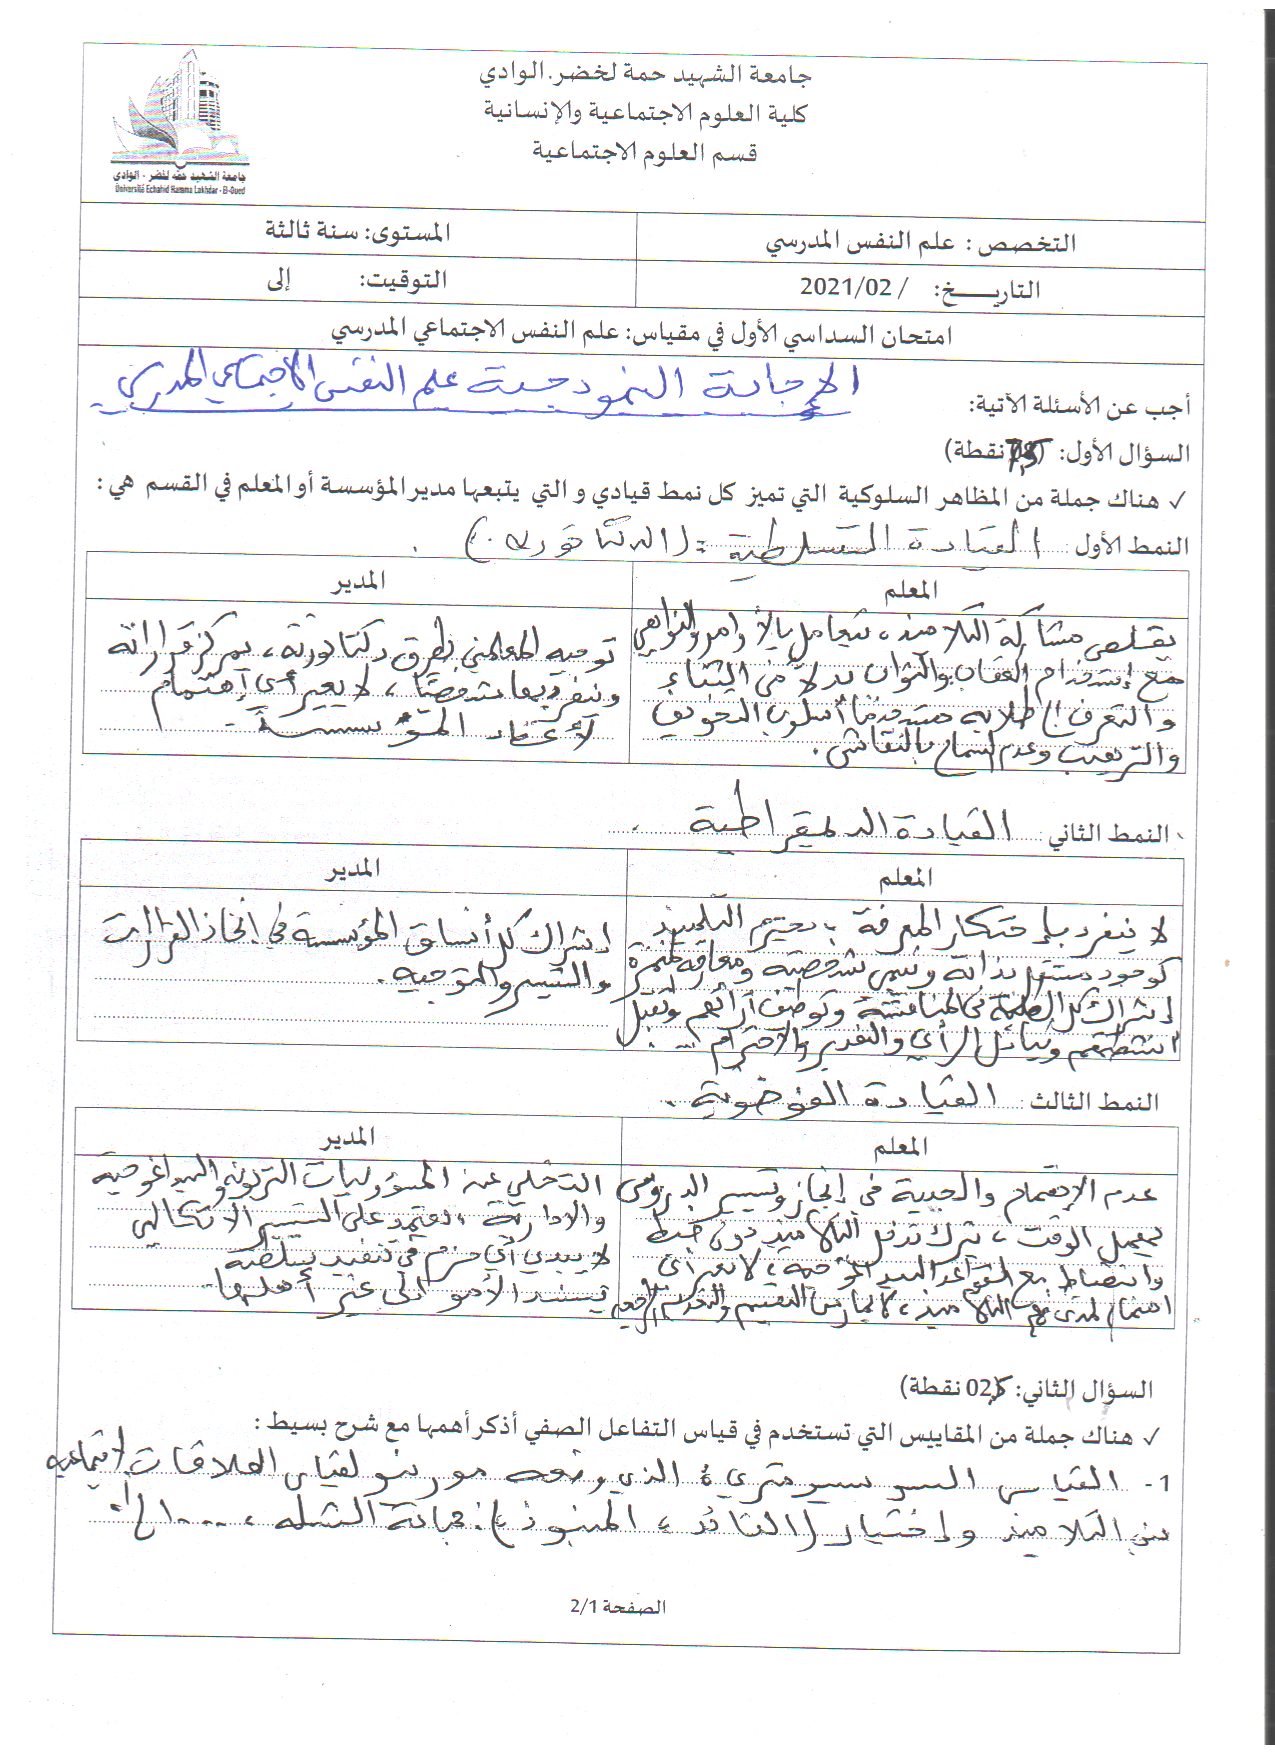 جامعة الشهيد حمة لخضر.الوادي
كلية العلوم الاجتماعية والإنسانية
قسم العلوم الاجتماعية
جامعة الشهيد حمه لخضر - الوادي
Université Echahid Hamma Lakhdar - El-Oued
التخصص: علم النفس المدرسي
المستوى: سنة ثالثة
التاريـــخ: / 2021/02
التوقيت: إلى
امتحان السداسي الأول في مقياس: علم النفس الاجتماعي المدرسي
الإجابة النموذجية علم النفس الاجتماعي المدرسي
أجب عن الأسئلة الآتية:
السؤال الأول: ( نقطة)
✓ هناك جملة من المظاهر السلوكية التي تميز كل نمط قيادي و التي يتبعها مدير المؤسسة أو المعلم في القسم هي:
النمط الأول: القيادة التسلطية: (الدكتاتورية).
المعلم
المدير
يقلص مشاركة التلاميذ، يتعامل بالأوامر والنواهي
مع إستخدام العقاب والثواب بدلا من الثناء
والتعرف الى طلابه مستخدما أسلوب التخويف
والترهيب وعدم السماح بالنقاش.
توجيه المعلمين بطرق دكتاتورية، يمركز قراراته
وينفرد بها شخصيا، لا يعير أي إهتمام
لأعضاء المؤسسة.
النمط الثاني: القيادة الديمقراطية.
المعلم
المدير
لا ينفرد بإحتكار المعرفة، يحترم التلميذ
كوجود مستقل بذاته وينمي شخصيته ومعارفه
إشراك كل الطلبة في المناقشة وتوظيف آرائهم وتقبل
انشطتهم وتبادل الرأي والتقدير والاحترام...
إشراك كل أنساق المؤسسة في إتخاذ القرارات
والتسيير والتوجيه.
النمط الثالث: القيادة الفوضوية.
المعلم
المدير
عدم الإهتمام والجدية في إنجاز وتسيير الدروس
يهمل الوقت، يترك تدخل التلاميذ دون ضبط
وانضباط مع القواعد البيداغوجية، لا يعير أي
اهتمام لمدى فهم التلاميذ، لا يمارس التقييم والتقويم
التخلي عن المسؤوليات التربوية والبيداغوجية
والادارية، يعتمد على التسيير الاتكالي
لا يبدي أي حزم في تنفيذ سلطته
تسند الأمور الى غير أهلها.
السؤال الثاني: (02 نقطة)
✓ هناك جملة من المقاييس التي تستخدم في قياس التفاعل الصفي أذكر أهمها مع شرح بسيط:
1- القياس السوسيومتري: الذي وضعه مورينو لقياس العلاقات الاجتماعية
بين التلاميذ وإختيار (القائد، المنبوذ)، الشلة، ....الخ.
الصفحة 2/1